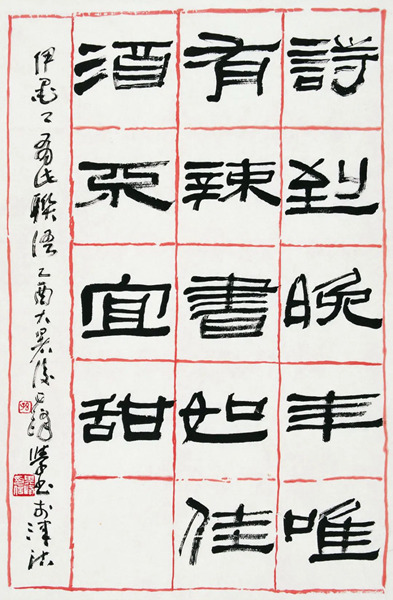 詩到晚年唯
有辣書如佳
酒不宜甜
伊墨 此聯語乙酉大暑後 書於津沽